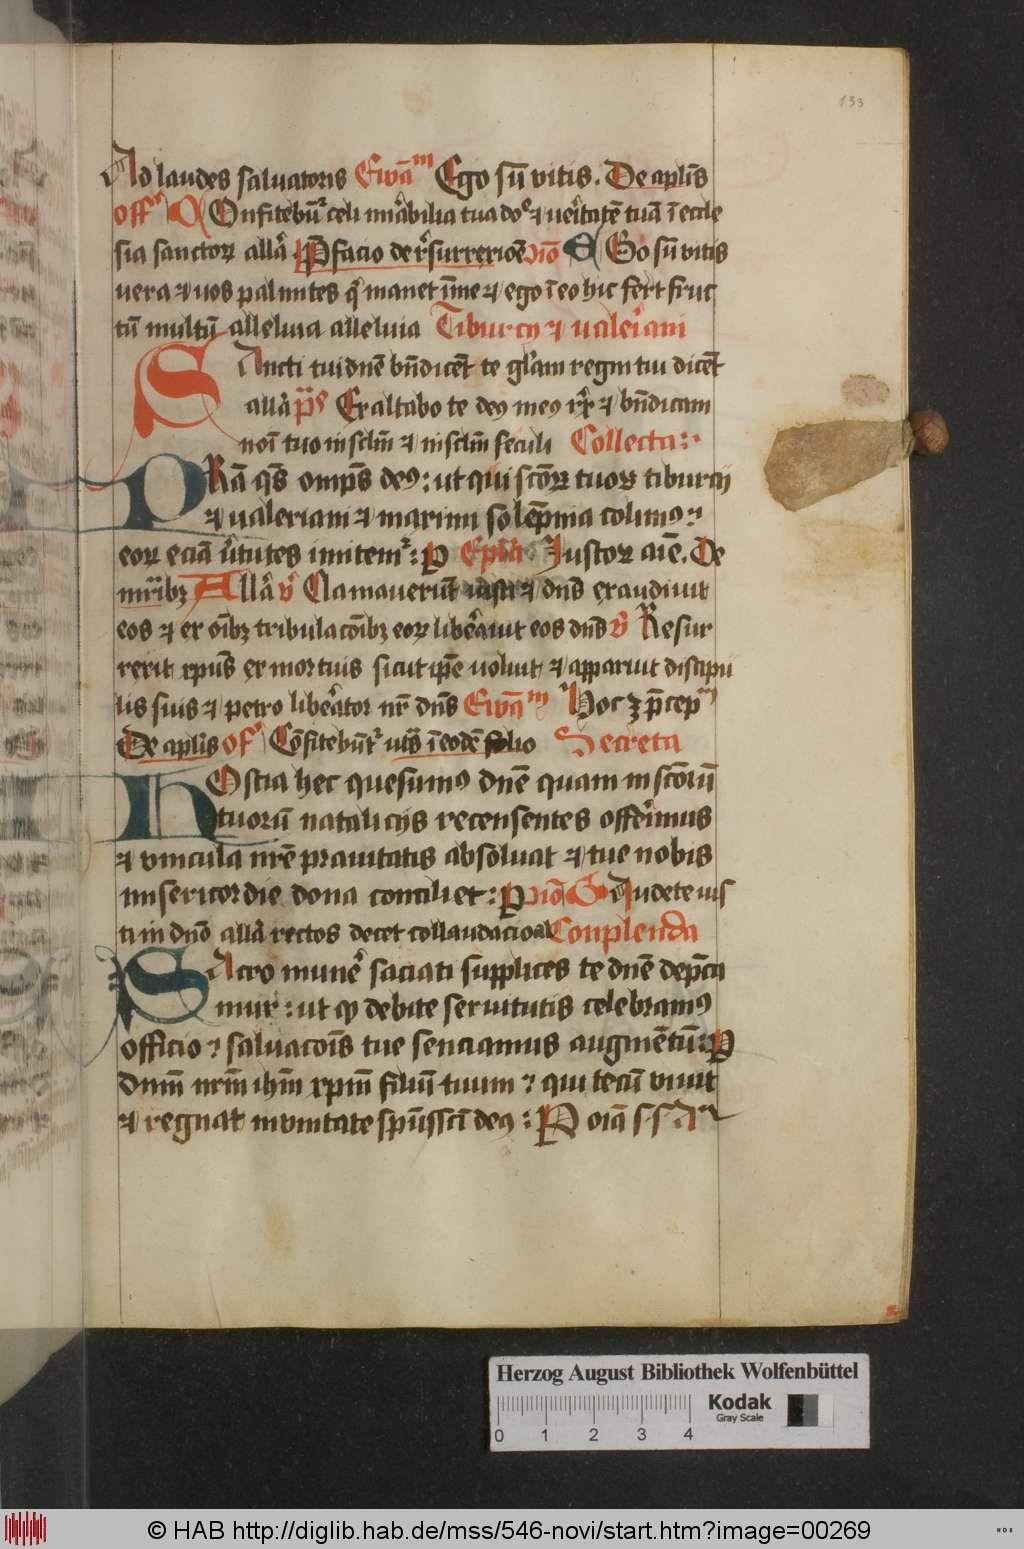 133
Ad laudes saluatoris Ewāᵐ Ego sū vitis. De aplīs
Offᵐ COnfitebūᵗ celi mīabilia tua doᵉ ⁊ ueritatē tuā ī eccle
sia sanctoꝝ allā Prefacio de rˢurrexiōe ꝯiō EGo sū vitis
uera ⁊ uos palmites qͥ manet īme ⁊ ego ī eo hic fert fruc
tū multū alleluia alleluia Tiburcij ⁊ ualeriani
SAncti tui dnē bn̄dicēt te glām regni tui dicēt
allā pˢ Exaltabo te deꝰ meꝰ rex ⁊ bn̄dicam
noī tuo in sclm̄ ⁊ in sclm̄ seculi Collecta:
PRā qˢ omps deꝰ: ut qui scōꝝ tuoꝝ tiburcij
⁊ ualeriani ⁊ maximi solēpnia colimꝰ:
eoꝝ eciā ûtutes imitemʳ: P Eplā Iustoꝝ aīe. De
mr̄ibꝫ Allā ṽ Clamauerūt iusti ⁊ dn̄s exaudiuit
eos ⁊ ex oībꝫ tribulacōibꝫ eoꝝ liberauit eos dn̄s ṽ Resur
rexit xpūs ex mortuis sicut ipē uoluit ⁊ apparuit discipu
lis suis ⁊ petro liberator nr̄ dn̄s Ewāᵐ Hoc ꝫ p̄cepᵐ
De aplīs ofᵐ Cōfitebūᵗ utˢ ī eodē folio Secreta
HOstia hec quesumꝰ dnē quam in scōrū
tuorū nataliciis recensentes offerimus
⁊ vincula nrē prauitatis absoluat ⁊ tue nobis
misericordie dona conciliet: P ꝯiō GAudete ius
ti in dnō allā rectos decet collaudacio al Conplenda
SAcro munêˢ saciati supplices te dnē dep̄ca
mur: ut qͩ debite seruitutis celebramꝰ
officio: saluacōis tue senciamus augmētū: P
dnm̄ nrm̄ ihm̄ xpm̄ filiū tuum: qui tecū viuit
⁊ regnat in vnitate spūssci deꝰ: P oiā s s A
Herzog August Bibliothek Wolfenbüttel
Kodak
Gray Scale
0 1 2 3 4
© HAB http://diglib.hab.de/mss/546-novi/start.htm?image=00269
HAB